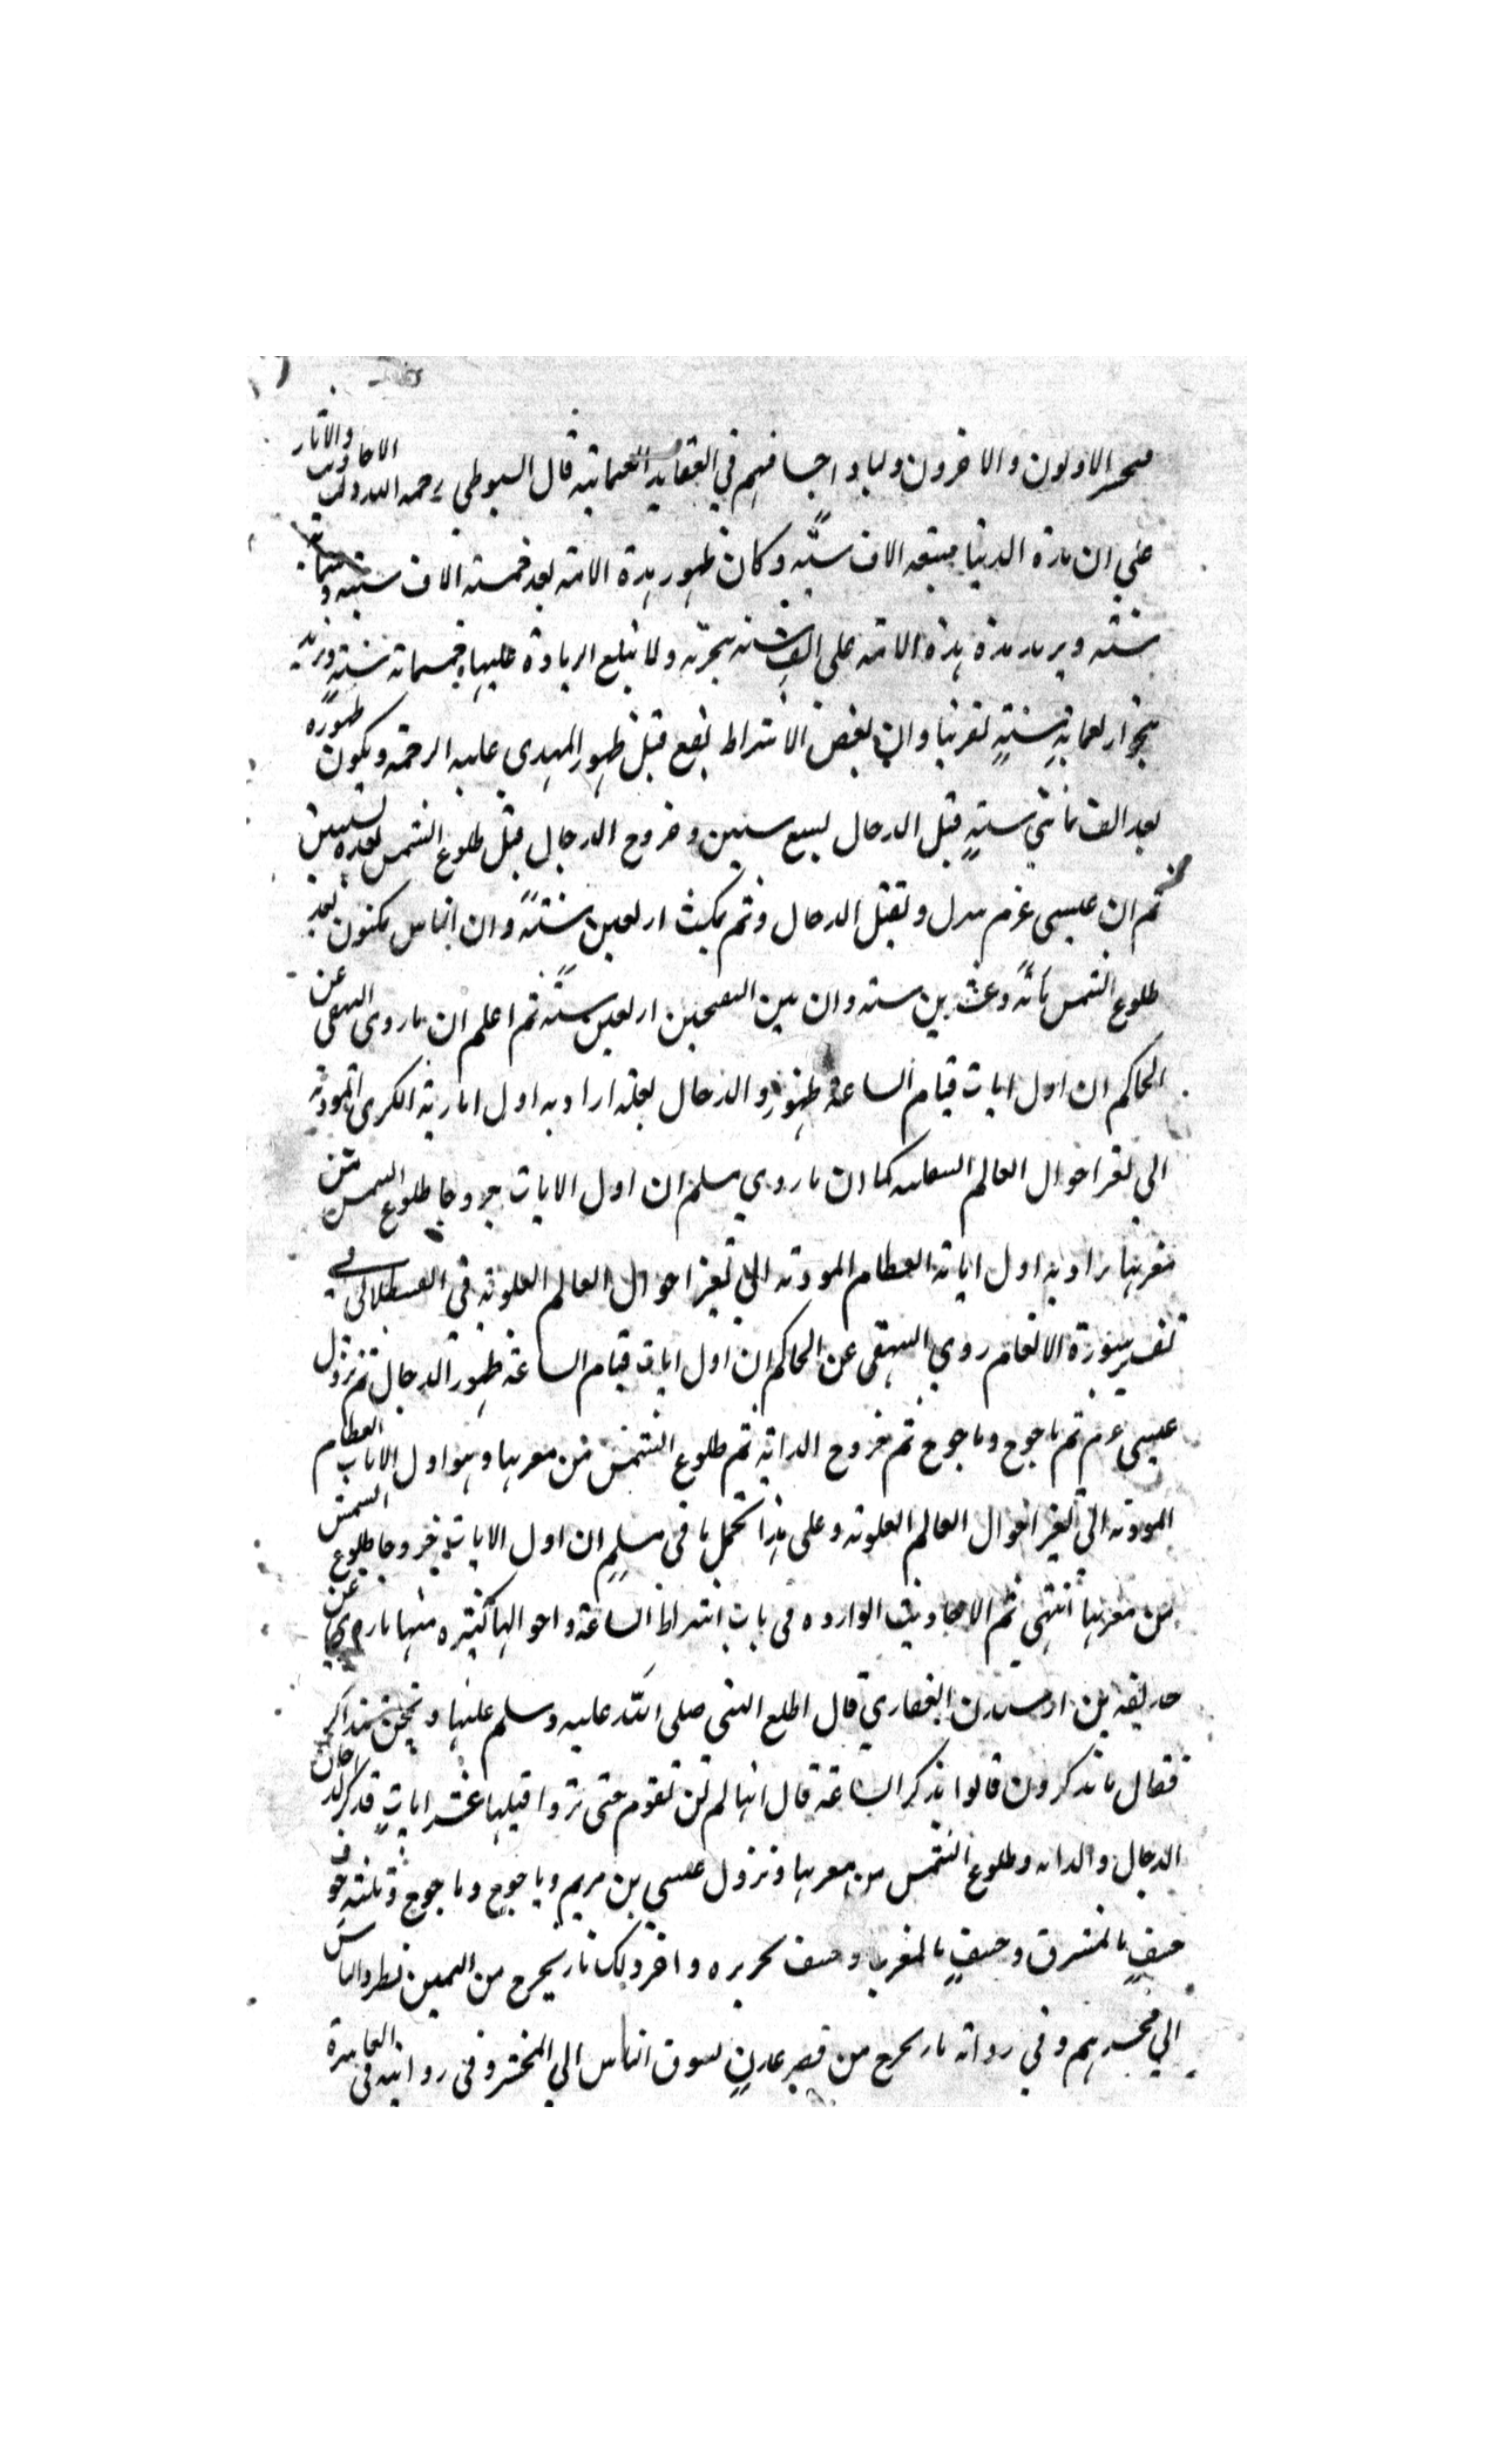 فيحشر الاولون والاخرون ولباد اجسافهم في العقايد العمانيه قال السيوطي رحمه الله دلت الاحاديث والاثار
على ان مدة الدنيا سبعه الاف سنه وكان ظهور هذه الامته بعد خمسته الاف سنته و
سنته ويريد مدة هذه الامته على الف سنه هجرته ولا تبلع الزيادة عليها خمسماته سنته
بنحو اربعماية سنته تقريبا وان بعض الاشراط تقع قبل ظهور المهدي عليه الرحمته ويكون ظهوره
بعد الف مائتي سنته قبل الدجال بسبع سنين وخروج الدجال قبل طلوع الشمس
ثم ان عيسى عم ينزل ويقتل الدجال وثم يمكث اربعين سنته وان الناس يمكثون بعد
طلوع الشمس مائه وعشرين سنه وان بين النفختين اربعين سنه ثم اعلم ان ما روى البيهقي عن
الحاكم ان اول ايات قيام الساعة ظهور الدجال لعله اراد به اول اماريته الكبرى المودته
الى تغير احوال العالم السفليه كما ان ما روي مسلم ان اول الايات خروجا طلوع الشمس من
مغربها يراد به اول اياته العظام المودته الى تغير احوال العالم العلوته في القسطلاني في
تفسير سورة الانعام روي البيهقي عن الحاكم ان اول ايات قيام الساعته ظهور الدجال ثم نزول
عيسى عم ثم ياجوج وماجوج ثم خروج الدابة ثم طلوع الشمس من مغربها وهو اول الايات العظام
المودته الى تغير احوال العالم العلوته وعلى هذا تحمل ما في مسلم ان اول الايات خروجا طلوع الشمس
من مغربها انتهى ثم الاحاديث الوارده في باب اشراط الساعة واحوالها كثيره منها ما روي عن
حذيفه بن اوسيدن الغفاري قال اطلع النبي صلى الله عليه وسلم علينا ونحن نتذاكر
فقال ما تذكرون قالوا نذكر الساعة قال انها لم لن تقوم حتى تروا قبلها عشر ايات فذكر الدخان
الدجال والدابه وطلوع الشمس من مغربها ونزول عيسى بن مريم وياجوج وماجوج وثلثته خسوف
خسف بالمشرق وخسف بالمغرب وخسف بجزيره واخر ذلك نار يخرج من اليمن تطرد الناس
الي محشرهم وفي روايه نار تخرج من قعر عدن تسوق الناس الى المحشر وفي روايه في العاشرة